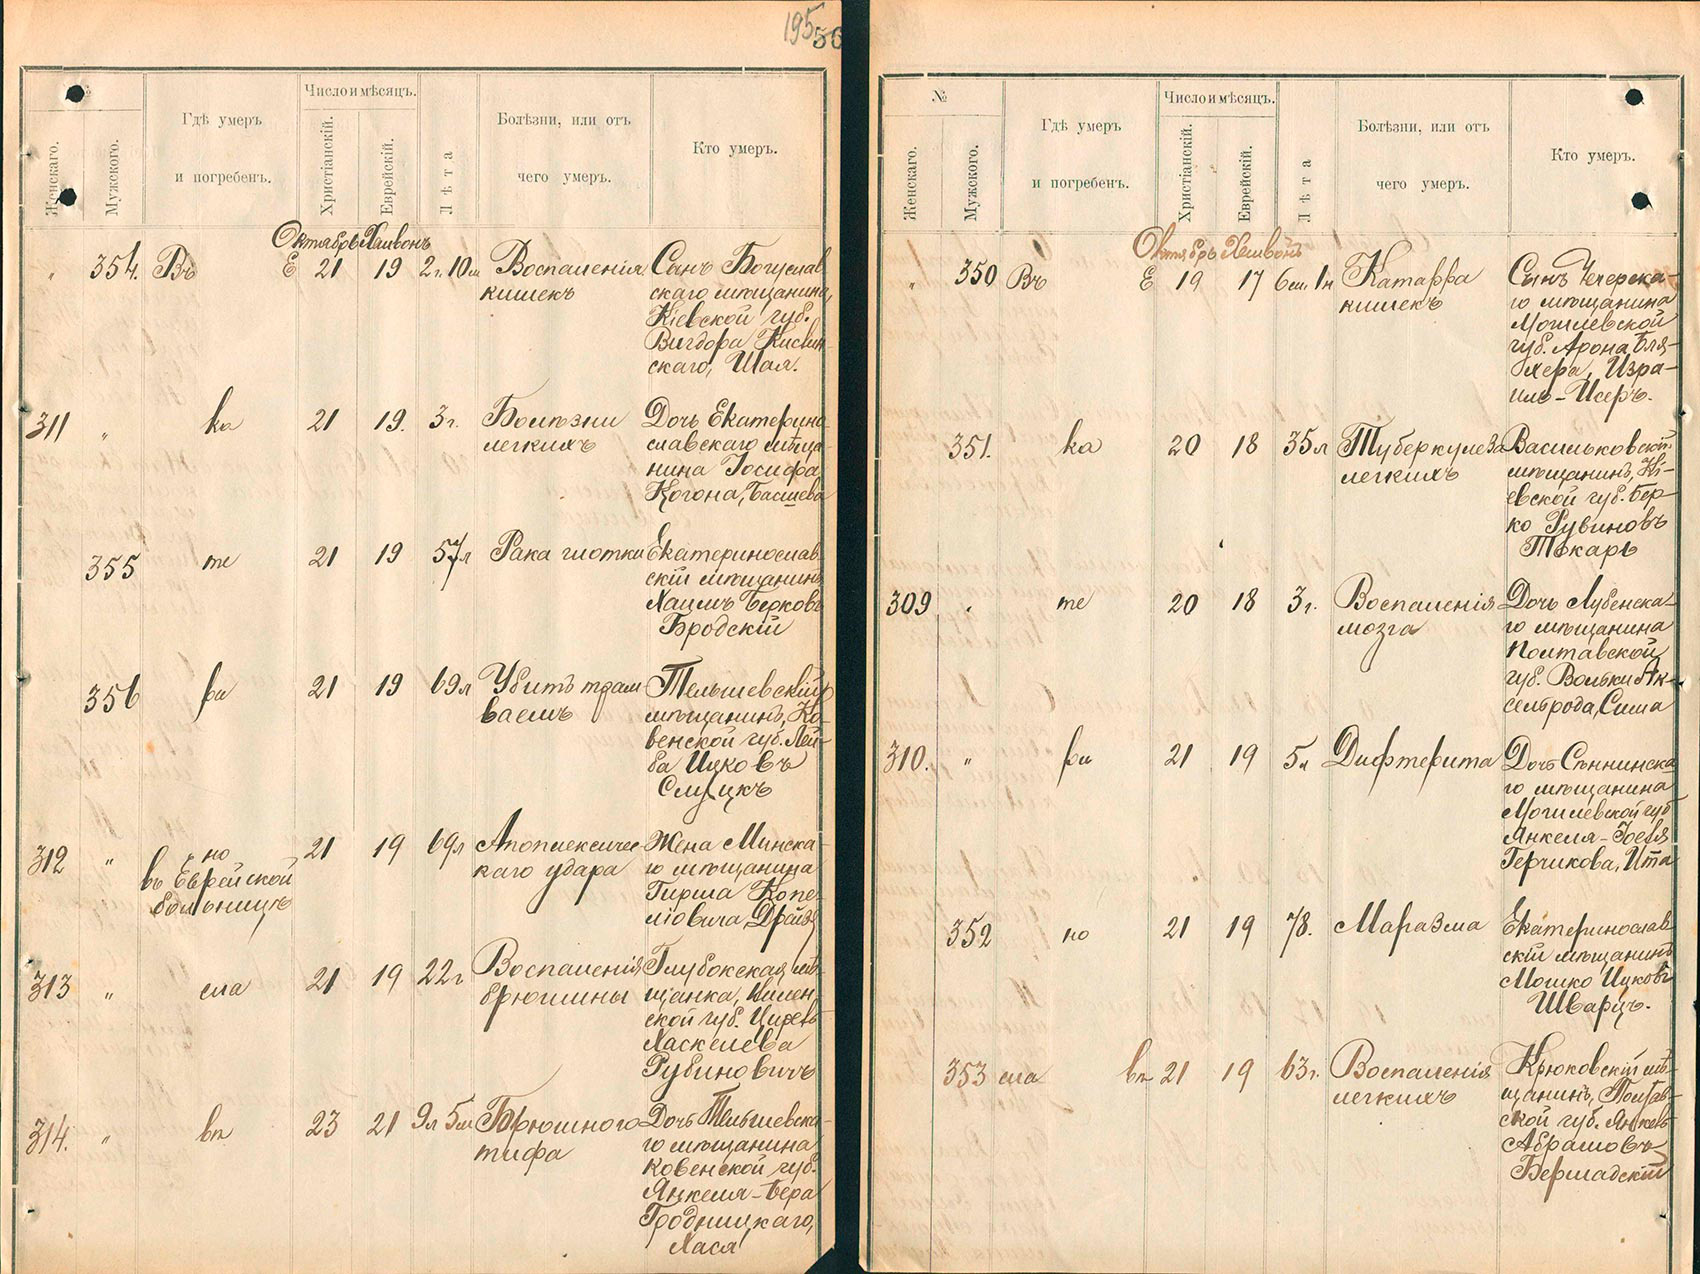 195
56
№
Женскаго.
Мужского.
Гдѣ умеръ
и погребенъ.
Число и мѣсяцъ.
Христіанскій.
Еврейскій.
Лѣта
Болѣзни, или отъ
чего умеръ.
Кто умеръ.
Октябрь Хешвонъ
" 354. Въ Е 21 19 2 г. 10 м Воспаленія
кишекъ
Сынъ Богуслав
скаго мѣщанина,
Кіевской губ.
Вигдора
скаго, Шая.
311 " ка 21 19. 3 г. Болѣзни
легкихъ
Дочь Екатерино
славскаго мѣща
нина Іосифа
Когона, Басшева
355 те 21 19 57 л Рака глотки
Екатеринослав
скій мѣщанинъ
Хаимъ Берковъ
Бродскій
356 ри 21 19 69 л Убитъ трам
ваемъ
Тельшевскій
мѣщанинъ, Ко-
венской губ. Лей-
ба Ицковъ
Слуцкъ
312 " но
въ Еврейской
больницѣ
21 19 69 л Апоплексичес
каго удара
Жена Минска-
го мѣщанина
Гирша Копе-
ліовича, Дрейзя
313 " сла 21 19 22 г Воспаленія
брюшины
Глубокская мѣ-
щанка, Вилен
ской губ. Ципе
Хаскелева
Рубиновичъ
314. " вѣ 23 21 9 л 5 м Брюшного
тифа
Дочь Тельшевска-
го мѣщанина
Ковенской губ.
Янкеля-Бера
Гродницкаго,
Хася
№
Женскаго.
Мужского.
Гдѣ умеръ
и погребенъ.
Число и мѣсяцъ.
Христіанскій.
Еврейскій.
Лѣта
Болѣзни, или отъ
чего умеръ.
Кто умеръ.
Октябрь Хешвонъ
" 350 Въ Е 19 17 6 м. 1 н Катарра
кишекъ
Сынъ Чечерска-
го мѣщанина
Могилевской
губ. Арона Бля-
хера, Изра-
иль-Исеръ.
351. ка 20 18 35 л Туберкулеза
легкихъ
Васильковскій
мѣщанинъ, Кі-
евской губ. Бер-
ко Рувиновъ
Токарь
309 " те 20 18 3 г. Воспаленія
мозга
Дочь Лубенска-
го мѣщанина
Полтавской
губ. Вольки Ак-
сельрода, Сима
310. " ри 21 19 5 л Дифтерита
Дочь Сѣннинска
го мѣщанина
Могилевской губ
Янкеля-Іосель
Герчикова, Ита
352 но 21 19 78. Маразма
Екатеринослав
скій мѣщанинъ
Мошко Ицковъ
Шварцъ.
353 сла вѣ 21 19 63 г. Воспаленія
легкихъ
Крюковскій мѣ-
щанинъ, Полтав-
ской губ. Янкель
Абрамовъ
Бершадскій